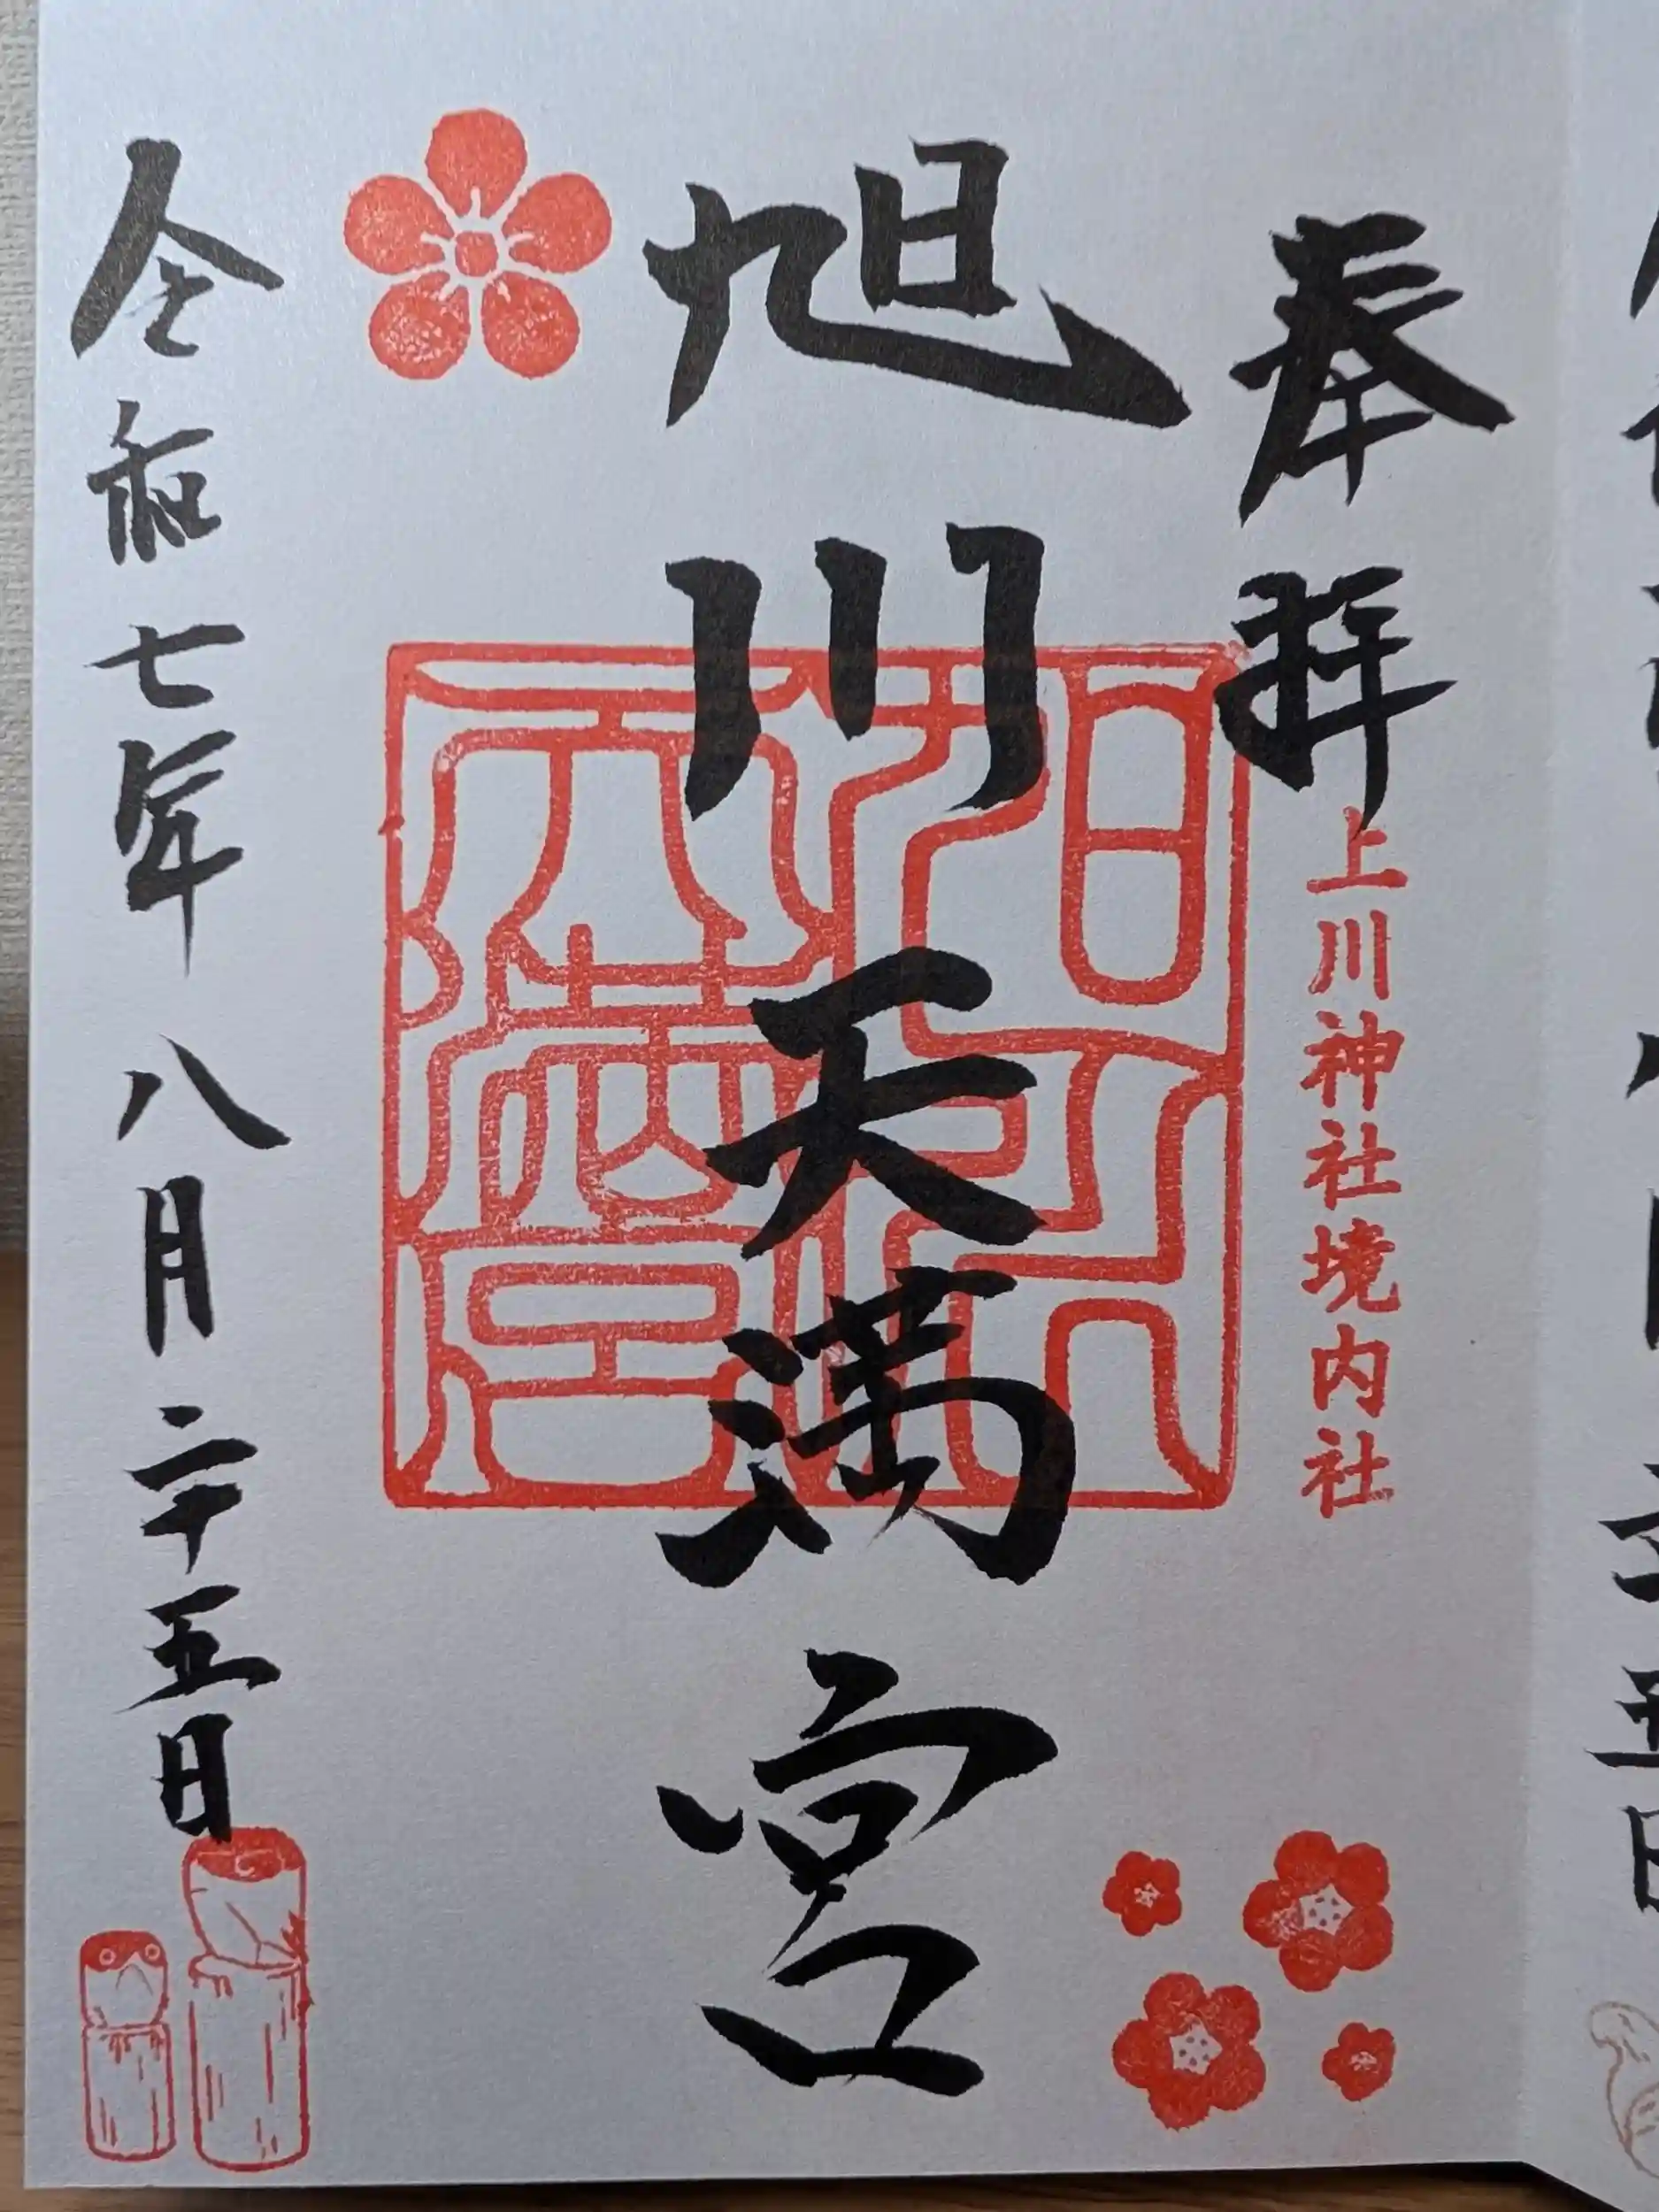 奉拝
上川神社境内社
旭川天満宮
旭川神社天満宮
令和七年八月二十五日